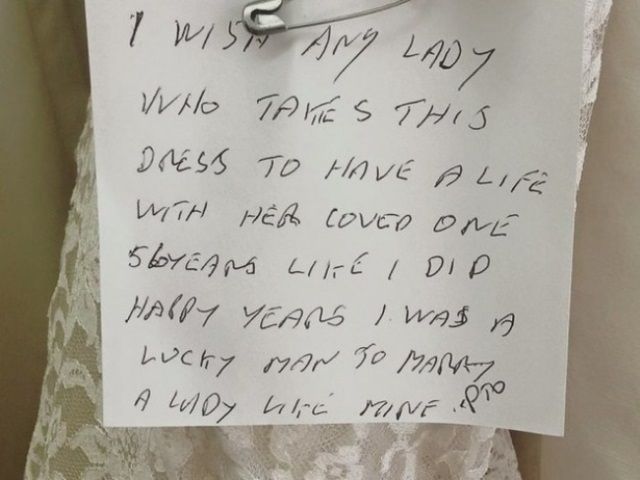 I WISH ANY LADY
WHO TAKES THIS
DRESS TO HAVE A LIFE
WITH HER LOVED ONE
56 YEARS LIKE I DID
HAPPY YEARS I WAS A
LUCKY MAN TO MARRY
A LADY LIKE MINE. PTO